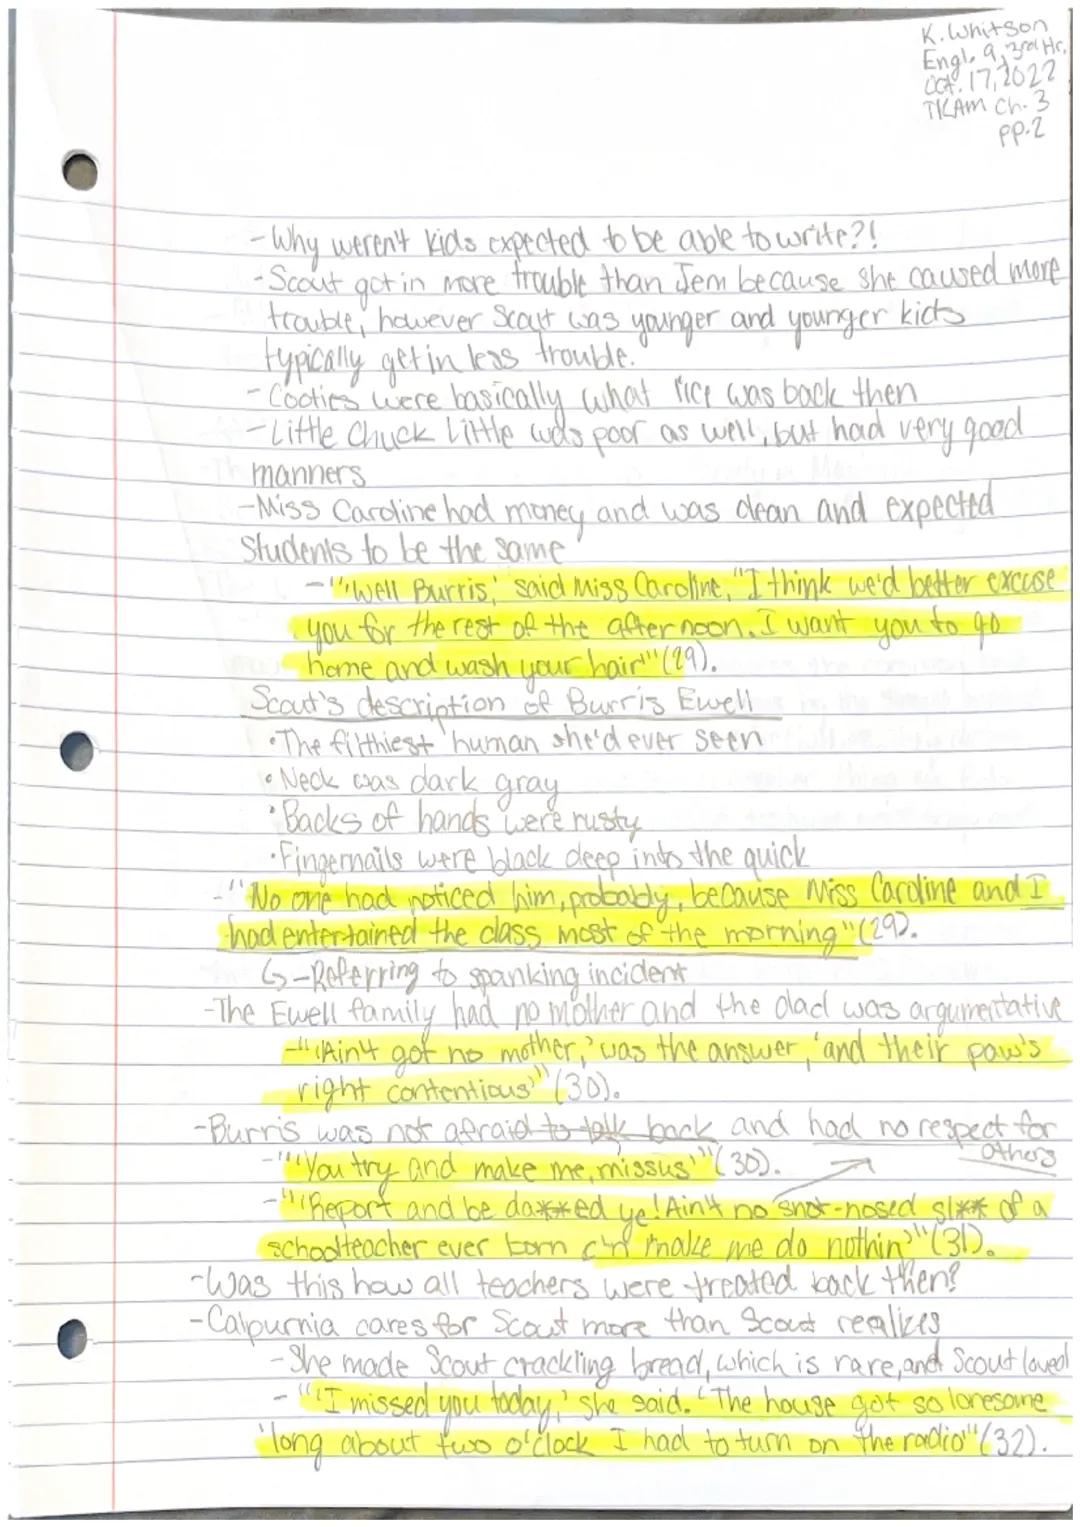 K. Whitson
Engl. 9, 3rd Hr.
Oct. 17, 2022
TKAM Ch. 3
pp. 2
- Why weren't kids expected to be able to write?!
- Scout got in more trouble than Jem because she caused more
trouble, however Scout was younger and younger kids
typically get in less trouble.
- Cooties were basically what lice was back then
- Little Chuck Little was poor as well, but had very good
manners
- Miss Caroline had money and was clean and expected
students to be the same
- "'Well Burris,' said Miss Caroline, "I think we'd better excuse
you for the rest of the afternoon. I want you to go
home and wash your hair'" (29).
Scout's description of Burris Ewell
• The filthiest human she'd ever seen
• Neck was dark gray
• Backs of hands were rusty
• Fingernails were black deep into the quick
- "No one had noticed him, probably, because Miss Caroline and I
had entertained the class most of the morning" (29).
↳ - Referring to spanking incident
- The Ewell family had no mother and the dad was argumentative
- "'Ain't got no mother,' was the answer, 'and their paw's
right contentious'" (30).
- Burris was not afraid to talk back and had no respect for
others
- "'You try and make me, missus'" (30).
- "'Report and be da**ed ye! Ain't no snot-nosed sl** of a
schoolteacher ever born c'n make me do nothin'" (31).
- Was this how all teachers were treated back then?
- Calpurnia cares for Scout more than Scout realizes
- She made Scout crackling bread, which is rare, and Scout loved
- "'I missed you today,' she said. 'The house got so lonesome
'long about two o'clock I had to turn on the radio'" (32).